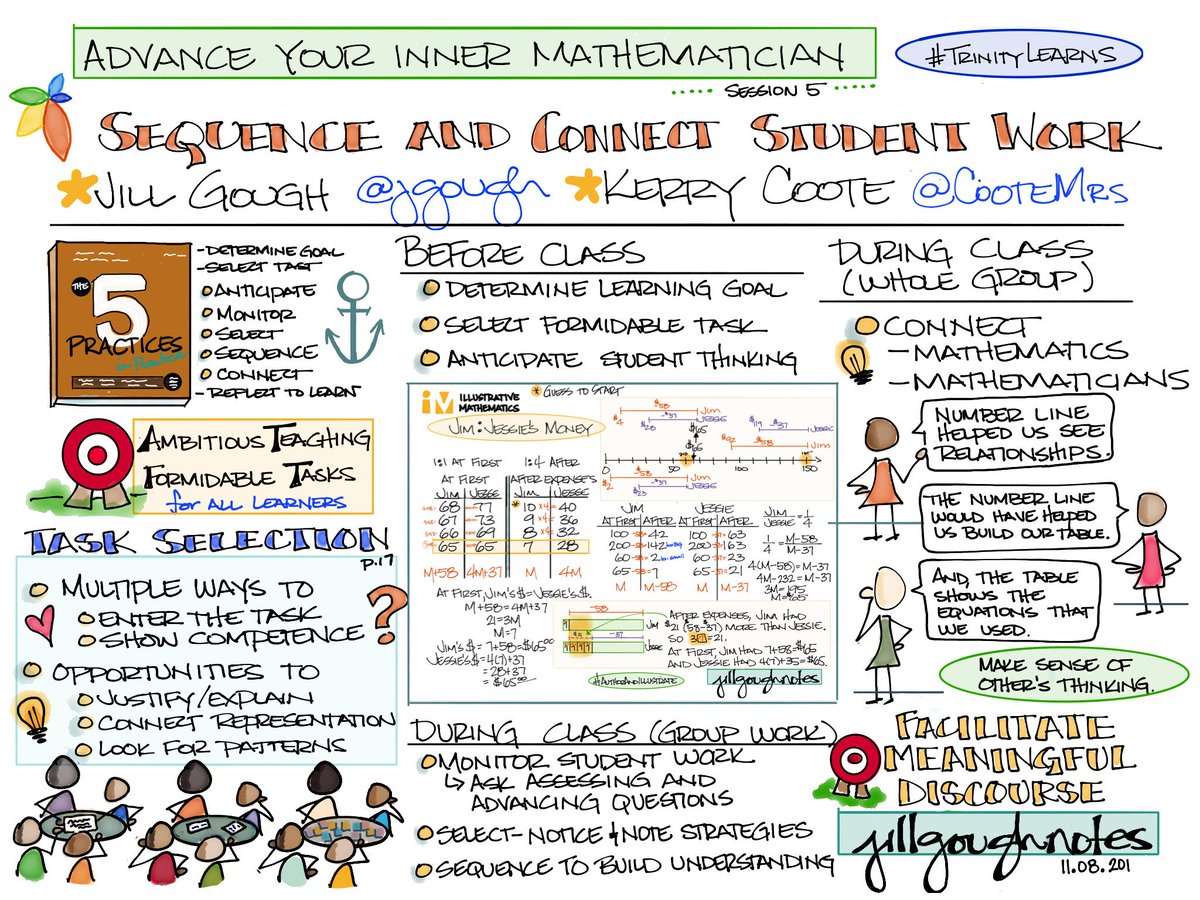 ADVANCE YOUR INNER MATHEMATICIAN
#TRINITYLEARNS
SESSION 5
SEQUENCE AND CONNECT STUDENT WORK
JILL GOUGH @jgough KERRY COOTE @COOTEMRS
THE
5
PRACTICES
in Practice
-DETERMINE GOAL
-SELECT TAST
ANTICIPATE
MONITOR
SELECT
SEQUENCE
CONNECT
-REFLECT TO LEARN
AMBITIOUS TEACHING
FORMIDABLE TASKS
for ALL LEARNERS
TASK SELECTION
p.17
MULTIPLE WAYS TO
ENTER THE TASK
SHOW COMPETENCE
?
OPPORTUNITIES TO
JUSTIFY/EXPLAIN
CONNECT REPRESENTATION
LOOK FOR PATTERNS
BEFORE CLASS
DETERMINE LEARNING GOAL
SELECT FORMIDABLE TASK
ANTICIPATE STUDENT THINKING
IM ILLUSTRATIVE
MATHEMATICS
GUESS TO START
JIM : JESSIE'S MONEY
1:1 AT FIRST 1:4 AFTER
AT FIRST AFTER EXPENSES
JIM JESSIE JIM JESSIE
68 77 10 x4= 40
67 73 9 x4= 36
66 69 8 x4= 32
65 65 7 28
M+58 4M+37 M 4M
AT FIRST, JIM'S $ = JESSIE'S $.
M+58=4M+37
21=3M
M=7
JIM'S $ = 7+58=$65.00
JESSIE'S $ = 4(7)+37
= 28+37
= $65.00
0 50 100 150
JIM JESSIE
AT FIRST AFTER AT FIRST AFTER
100 -58= 42 100 -37= 63
200 -58= 142 200 -37= 163
60 -58= 2 60 -37= 23
65 -58= 7 65 -37= 21
M M-58 M M-37
JIM/JESSIE = 1/4
1/4 = M-58/M-37
4(M-58)=M-37
4M-232=M-37
3M=195
M=$65
-58
JIM
-37
JESSIE
AFTER EXPENSES, JIM HAD
$21 (58-37) MORE THAN JESSIE.
SO 3[7]=21.
AT FIRST, JIM HAD 7+58=$65
AND JESSIE HAD 4(7)+35=$65.
#AUTHORANDILLUSTRATE
jillgoughnotes
DURING CLASS (GROUP WORK)
MONITOR STUDENT WORK
↳ ASK ASSESSING AND
ADVANCING QUESTIONS
SELECT-NOTICE & NOTE STRATEGIES
SEQUENCE TO BUILD UNDERSTANDING
DURING CLASS
(WHOLE GROUP)
CONNECT
-MATHEMATICS
-MATHEMATICIANS
NUMBER LINE
HELPED US SEE
RELATIONSHIPS.
THE NUMBER LINE
WOULD HAVE HELPED
US BUILD OUR TABLE.
AND, THE TABLE
SHOWS THE
EQUATIONS THAT
WE USED.
MAKE SENSE OF
OTHER'S THINKING.
FACILITATE
MEANINGFUL
DISCOURSE
jillgoughnotes
11.08.201